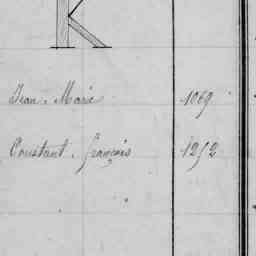 K
Jean, Marie 1069
Constant, françois 1252